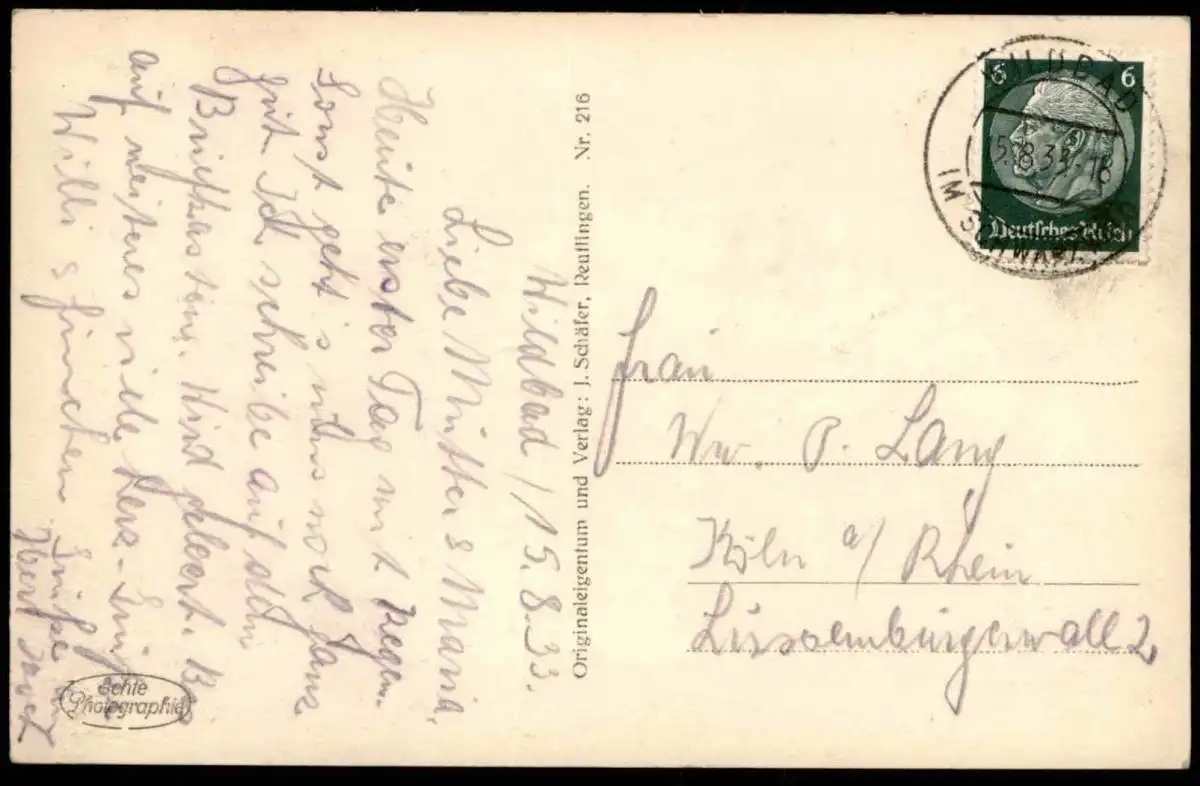 Wildbad / 15.8.33.
Liebe Mutter & Maria,
Heute erster Tag mit Regen.
Sonst geht's uns noch ganz
gut Ich schreibe auf dem
Briefkasten. Wird geleert. Bis
auf weiteres viele herz-
Willi & Finchen Grüße
Originaleigentum und Verlag: J. Schäfer, Reutlingen. Nr. 216
Echte
Photographie
WILDBAD
15.8.33.-18
IM SCHWARZW
6 6
Deutsches Reich
Frau
Ww. P. Lang
Köln a/ Rhein
Luxemburgerwall 2